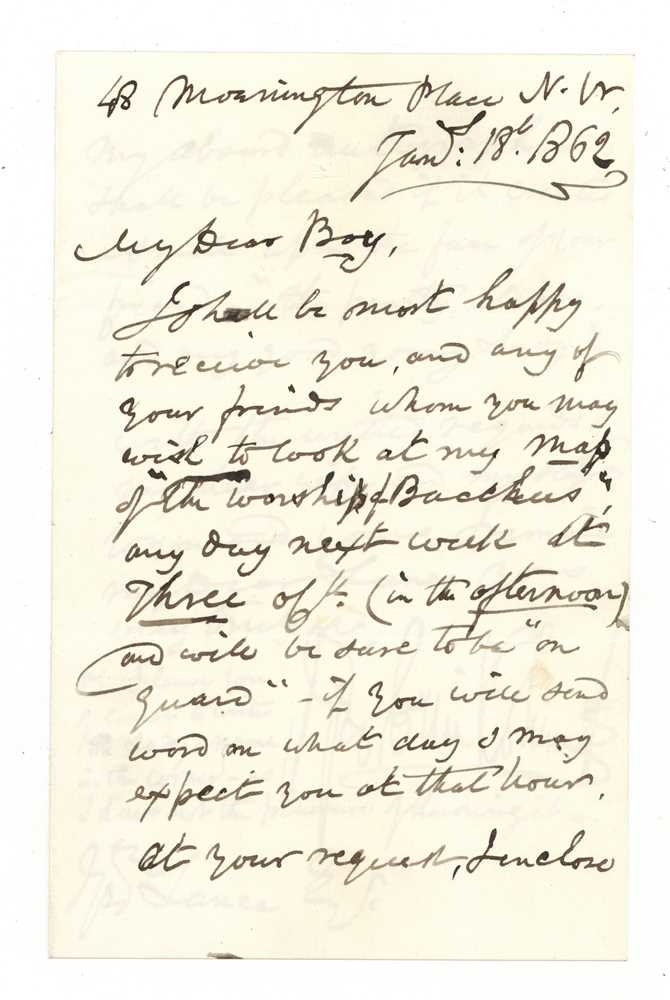 48 Mornington Place N. W.
Jany: 18th. 1862
My Dear Boy,
I shall be most happy
to receive you, and any of
your friends whom you may
wish to look at my Map
of "the Worship of Bacchus",
any day next week at
Three o'f k. (in the afternoon)
and will be sure to be "on
guard" - if you will send
word on what day I may
expect you at that hour.
At your request, I enclose